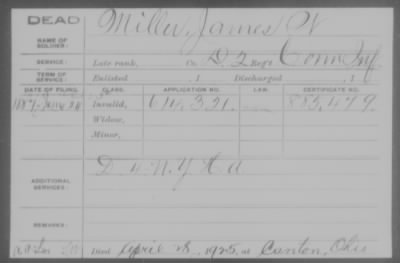 DEAD
NAME OF SOLDIER: Miller, James W
SERVICE: Late rank, Co. D. 2 Reg't Conn Inf.
TERM OF SERVICE: Enlisted , 1 Discharged , 1
DATE OF FILING. CLASS. APPLICATION NO. LAW. CERTIFICATE NO.
1887, June 24 Invalid, 614.321. 885.479.
Widow,
Minor,
ADDITIONAL SERVICES: D 4 N.Y H A
REMARKS:
Died April 28, 1925, at Canton, Ohio